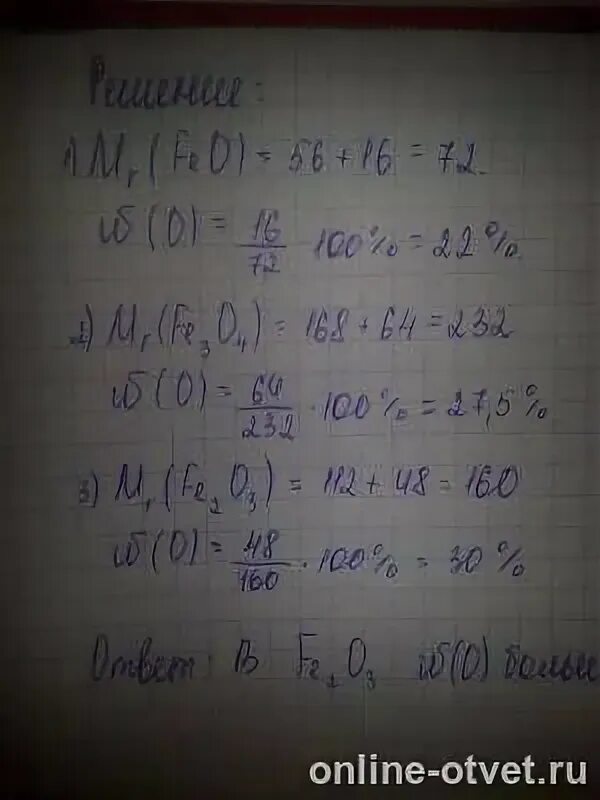 Решение:
1) Mr (FeO) = 56 + 16 = 72
ω (O) = 16/72 · 100% = 22%
2) Mr (Fe₃O₄) = 168 + 64 = 232
ω (O) = 64/232 · 100% = 27,5%
3) Mr (Fe₂O₃) = 112 + 48 = 160
ω (O) = 48/160 · 100% = 30%
Ответ: В Fe₂O₃ ω(O) больше
online-otvet.ru